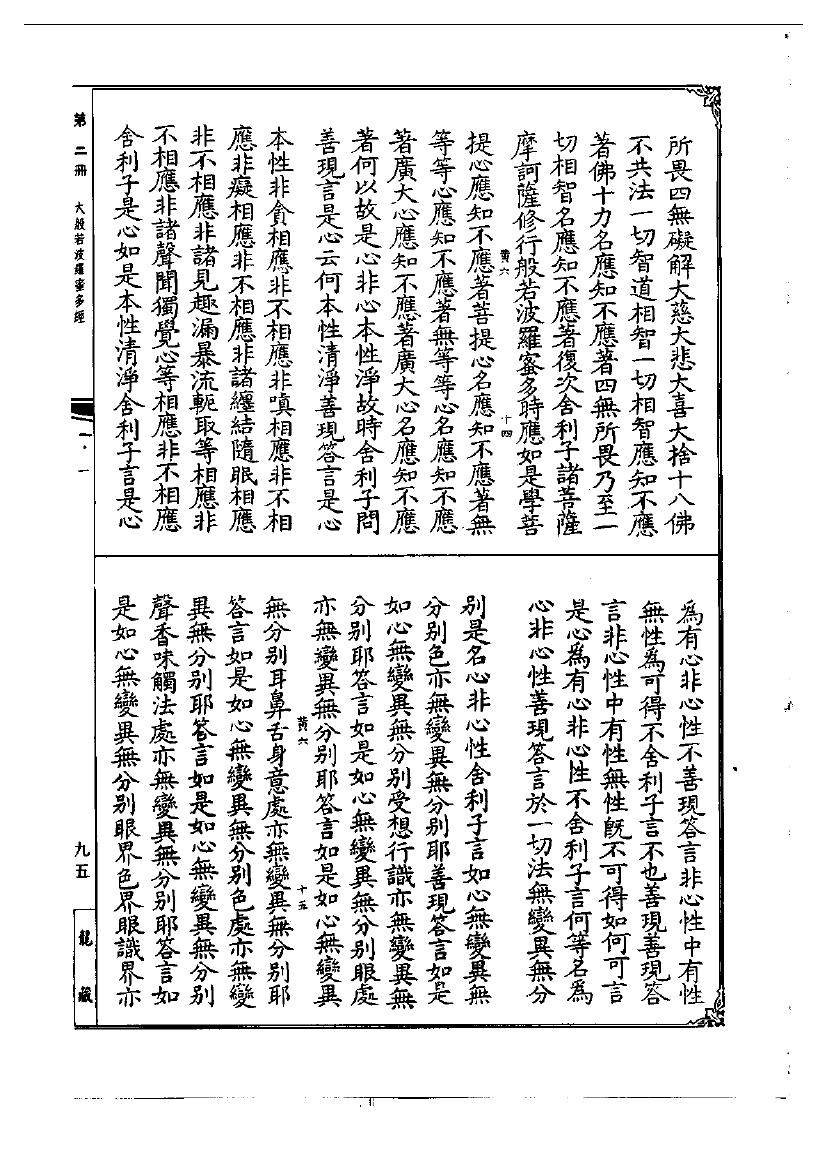 所畏四無礙解大慈大悲大喜大捨十八佛
不共法一切智道相智一切相智應知不應
著佛十力名應知不應著四無所畏乃至一
切相智名應知不應著復次舍利子諸菩薩
摩訶薩修行般若波羅蜜多時應如是學菩
黄六
十四
提心應知不應著菩提心名應知不應著無
等等心應知不應著無等等心名應知不應
著廣大心應知不應著廣大心名應知不應
著何以故是心非心本性淨故時舍利子問
善現言是心云何本性清淨善現答言是心
本性非貪相應非不相應非嗔相應非不相
應非癡相應非不相應非諸纏結隨眠相應
非不相應非諸見趣漏暴流軛取等相應非
不相應非諸聲聞獨覺心等相應非不相應
舍利子是心如是本性清淨舍利子言是心
為有心非心性不善現答言非心性中有性
無性為可得不舍利子言不也善現善現答
言非心性中有性無性旣不可得如何可言
是心為有心非心性不舍利子言何等名為
心非心性善現答言於一切法無變異無分
別是名心非心性舍利子言如心無變異無
分別色亦無變異無分別耶善現答言如是
如心無變異無分別受想行識亦無變異無
分別耶答言如是如心無變異無分別眼處
亦無變異無分別耶答言如是如心無變異
黄六
十五
無分別耳鼻舌身意處亦無變異無分別耶
答言如是如心無變異無分別色處亦無變
異無分別耶答言如是如心無變異無分別
聲香味觸法處亦無變異無分別耶答言如
是如心無變異無分別眼界色界眼識界亦
第二冊 大般若波羅蜜多經
一·一
九五
龍藏